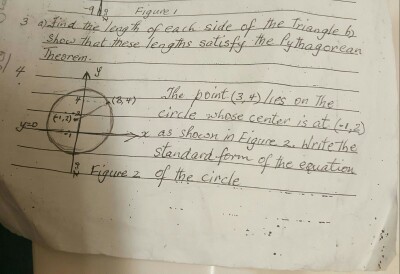 -9
Figure 1
3 a) Find the length of each side of the Triangle b)
Show that these lengths satisfy the Pythagorean
Theorem.
4
y
4 (3,4)
The point (3,4) lies on the
(-1,2)
circle whose center is at (-1,2)
y=0
x as shown in Figure 2. Write the
standard form of the equation
Figure 2 of the circle